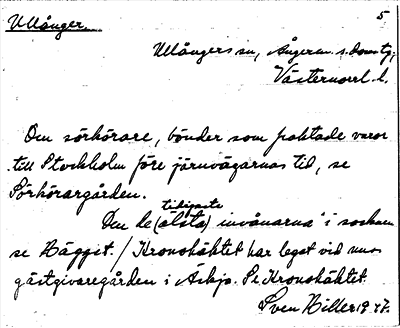 Ullånger.
5
Ullångers sn, Ångerm. s. domstg;
Västernorrl. l.
Om sörkörare, bönder som fraktade varor
till Stockholm före järnvägarnas tid, se
Sörkörargården.
tidigaste
Om de (älsta) invånarna i socknen
se Häggit. / Kronohäktet har legat vid nuv.
gästgivaregården i Askja. Se Kronohäktet.
Sven Hiller 1947.